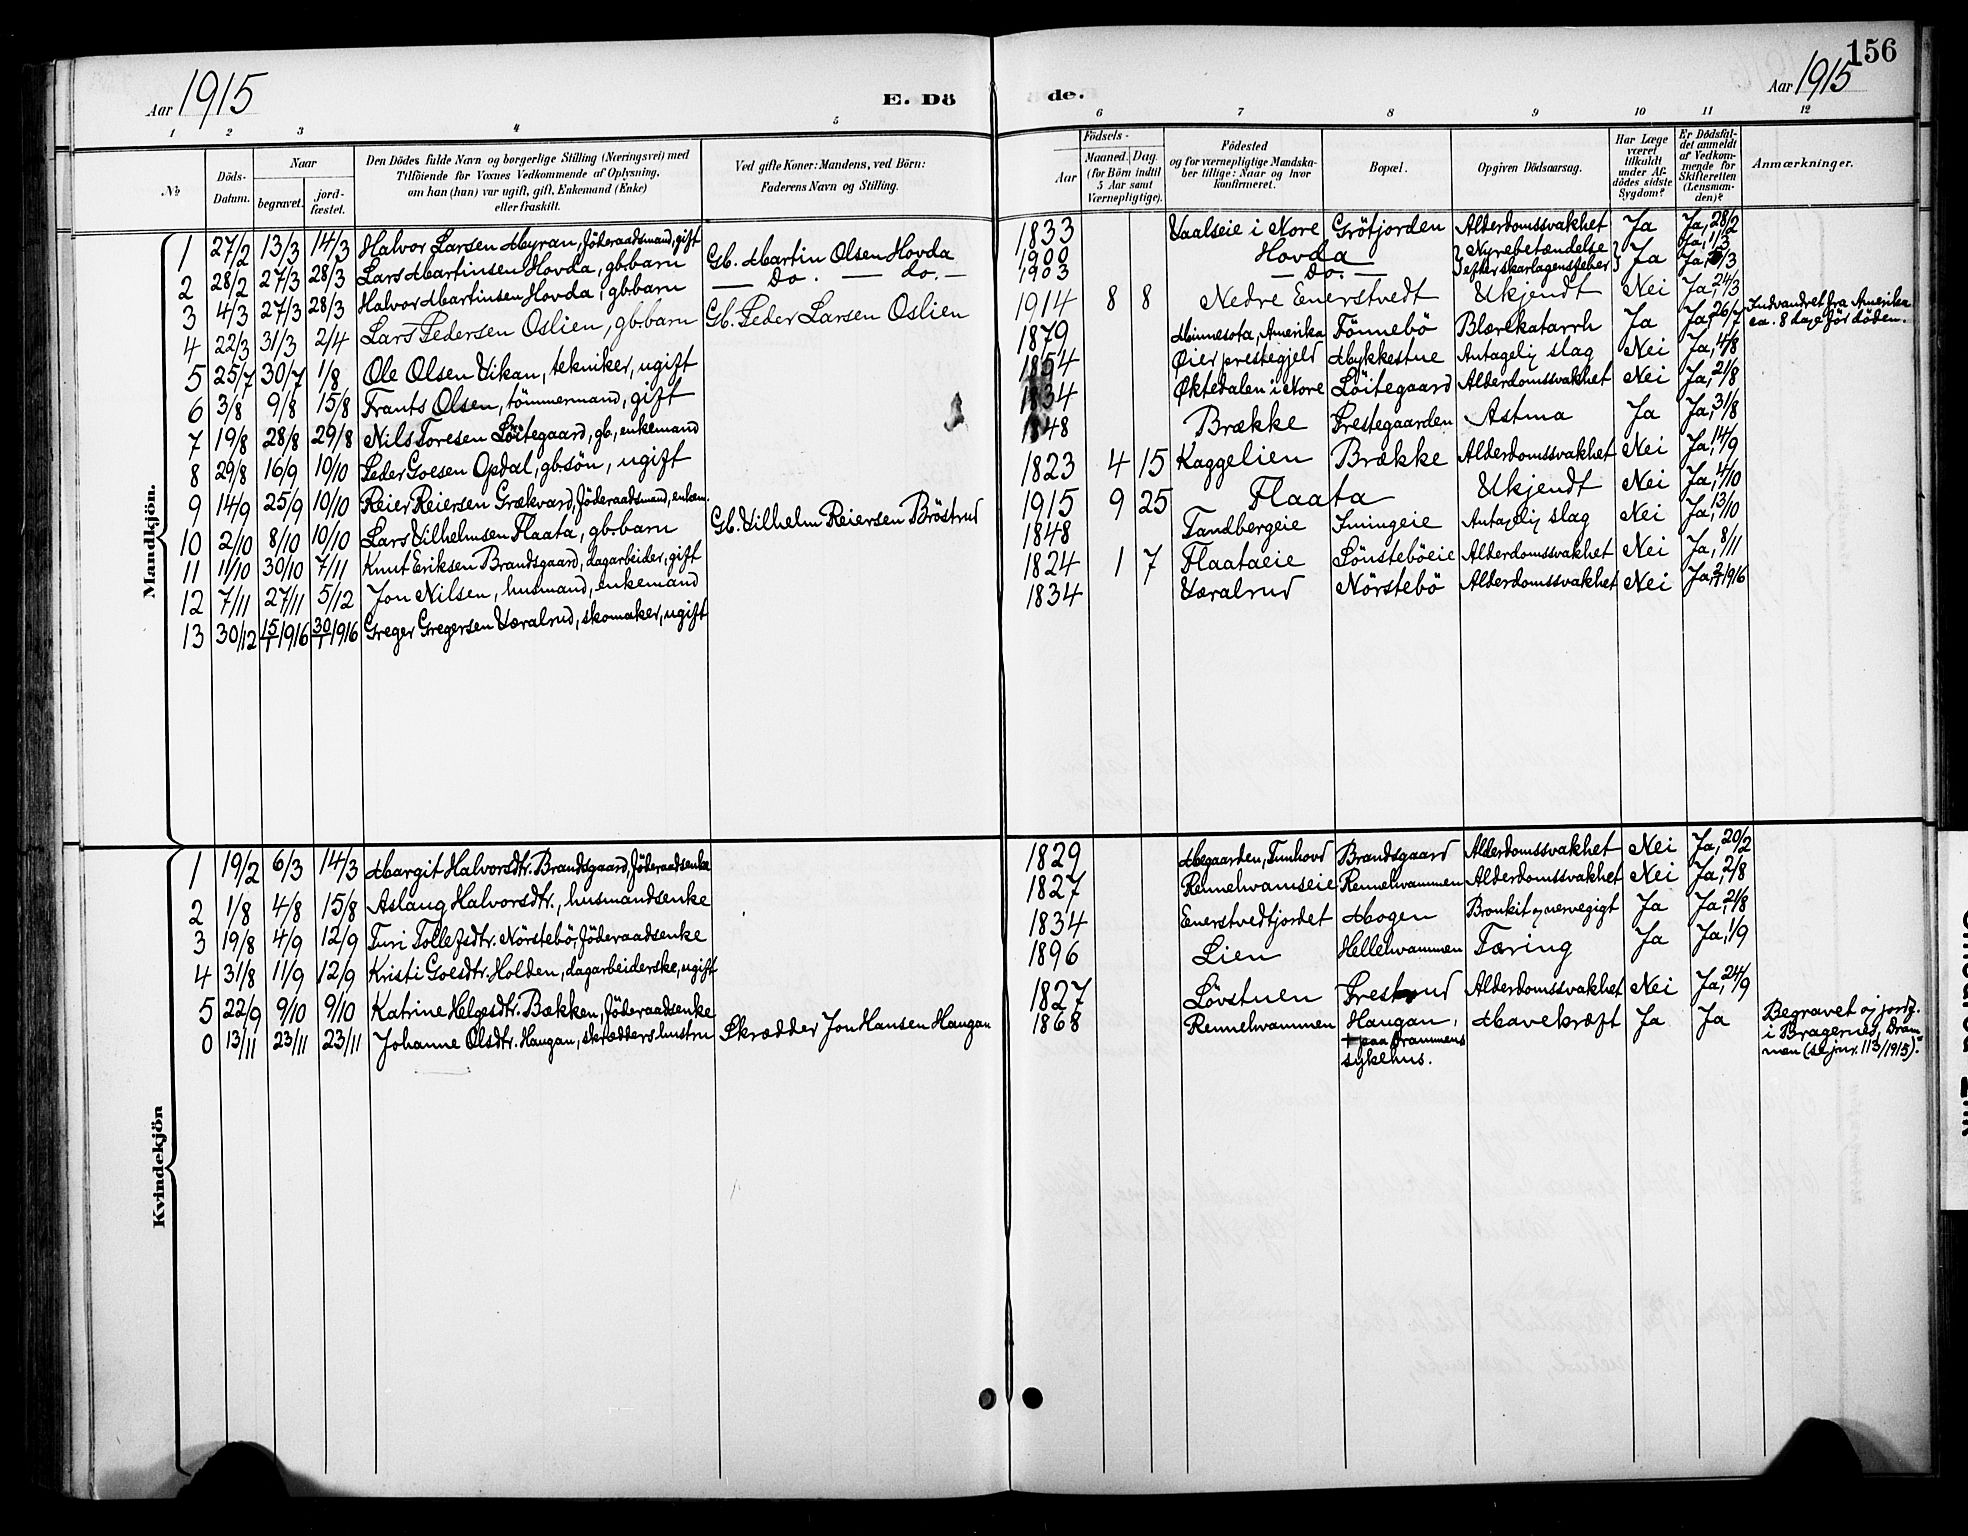 156
Aar 1915
E. Dö
de.
Aar 1915
1 2 3 4 5 6 7 8 9 10 11 12
No
Döds-
Datum.
Naar
begravet.
jord-
fæstet.
Den Dödes fulde Navn og borgerlige Stilling (Næringsvei) med
Tilföiende for Voxnes Vedkommende af Oplysning,
om han (hun) var ugift, gift, Enkemand (Enke)
eller fraskilt.
Ved gifte Koner: Mandens, ved Börn:
Faderens Navn og Stilling.
Födsels-
Aar
Maaned. Dag.
(for Börn indtil
5 Aar samt
Værnepligtige).
Födested
og for værnepligtige Mandska-
ber tillige: Naar og hvor
konfirmeret.
Bopæl.
Opgiven Dödsaarsag.
Har Læge
været
tilkaldt
under Af-
dödes sidste
Sygdom?
Er Dödsfal-
det anmeldt
af Vedkom-
mende for
Skifteretten
(Lensman-
den)?
Anmærkninger.
Mandkjön.
1 27/2 13/3 14/3 Halvor Larsen Myran, föderaadsmand, gift 1833 Vaalseie i Nore Grötjorden Alderdomssvakhet Ja Ja, 28/2
2 28/2 27/3 28/3 Lars Martinsen Hovda, gb.barn Gb. Martin Olsen Hovda 1900 Hovda Nyrebetændelse Ja Ja, 1/3
3 4/3 27/3 28/3 Halvor Martinsen Hovda, gb.barn — Do. — do. — 1903 — Do. — efter skarlagensfeber Ja, /3
4 22/3 31/3 2/4 Lars Pedersen Oslien, gb.barn Gb. Peder Larsen Oslien 1914 8 8 Nedre Enerstvedt Ukjendt Nei Ja, 24/3
5 25/7 30/7 1/8 Ole Olsen Vikan, tekniker, ugift 1879 Minnesota, Amerika Fönnebö Blærekatarrh Ja Ja, 26/7 Indvandret fra Amerika
ca. 8 dage för döden.
6 3/8 9/8 15/8 Frants Olsen, tömmermand, gift 1854 Öier prestegjeld Mykkestue Antagelig slag Nei Ja, 4/8
7 19/8 28/8 29/8 Nils Toresen Löitegaard, gb., enkemand 1834 Öktedalen i Nore Löitegaard Alderdomssvakhet Nei Ja, 21/8
8 29/8 16/9 10/10 Peder Goesen Opdal, gb.sön, ugift 1848 Brække Prestegaarden Astma Ja Ja, 31/8
9 14/9 25/9 10/10 Reier Reiersen Grækvard, föderaadsmand, enkem. 1823 4 15 Kaggelien Brække Alderdomssvakhet Nei Ja, 14/9
10 2/10 8/10 10/10 Lars Vilhelmsen Flaata, gb.barn Gb. Vilhelm Reiersen Bröstrud 1915 9 25 Flaata Ukjendt Nei Ja, 4/10
11 11/10 30/10 7/11 Knut Eriksen Brandsgaard, dagarbeider, gift 1848 Tandbergeie Imingeie Antagelig slag Nei Ja, 13/10
12 7/11 27/11 5/12 Jon Nilsen, husmand, enkemand 1824 1 7 Flaataeie Lönsteböeie Alderdomssvakhet Nei Ja, 8/11
13 30/12 15/1 1916 30/1 1916 Greger Gregersen Væralrud, skomaker, ugift 1834 Væralrud Nörstebö Alderdomssvakhet Nei Ja, 2/1 1916
Kvindekjön
1 19/2 6/3 14/3 Margit Halvorsdtr. Brandsgaard, föderaadsenke 1829 Megaarden, Tunhovd Brandsgaard Alderdomssvakhet Nei Ja, 20/2
2 1/8 4/8 15/8 Aslaug Halvorsdtr., husmandsenke 1827 Rennehvamseie Rennehvammen Alderdomssvakhet Nei Ja, 2/8
3 19/8 4/9 12/9 Turi Tollefsdtr. Nörstebö, föderaadsenke 1834 Enerstvedtjordet Mogen Bronkit og nervegigt Ja Ja, 21/8
4 31/8 11/9 12/9 Kristi Goesdtr. Holden, dagarbeiderske, ugift 1896 Lien Hellehvammen Tæring Ja Ja, 1/9
5 22/9 9/10 9/10 Katrine Helgesdtr. Bækken, föderaadsenke 1827 Lövstuen Alderdomssvakhet Nei Ja, 24/9
0 13/11 23/11 23/11 Johanne Olsdtr. Haugan, skrædders hustru Skrædder Jon Hansen Haugan 1868 Rennehvammen Haugan, Mavekræft Ja Ja
+ paa Drammens
sykehus.
Begravet og jordf.
i Bragernes, Dram-
men (se jnr. 113/1915).